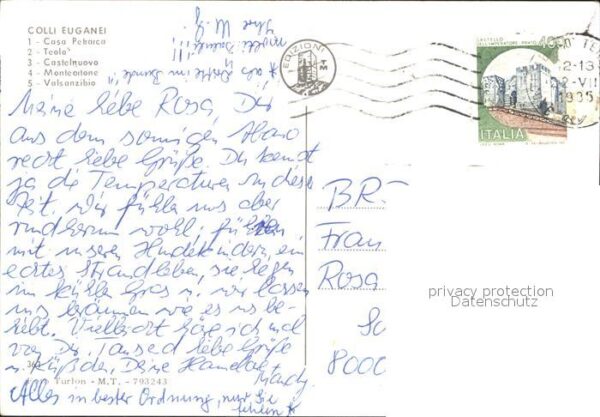 COLLI EUGANEI
1 - Casa Petrarca
2 - Teolo
3 - Castelnuovo
4 - Monteortone
5 - Valsanzibio
EDIZIONI
CASTELLO
DELL'IMPERATORE - PRATO
400
ITALIA
12-13
2-VII
1985
Meine liebe Rosa, Dir
aus dem sonnigen Abano
recht liebe Grüße. Du kennst
ja die Temperaturen in dieser
Zeit. Wir fühlen uns aber
rundherum wohl, führen
mit unseren Hundekindern, ein
echtes Strandleben, sie liegen
im kühlen Gras u. wir lassen
uns bräunen wie es uns be-
liebt. Vielleicht höre ich mal
von Dir. Tausend liebe Grüße
u. Küßchen, Deine
Turlon - M.T. - 793243
Alles in bester Ordnung, nur Sie
BR
Fran
Rosa
8000
privacy protection
Datenschutz